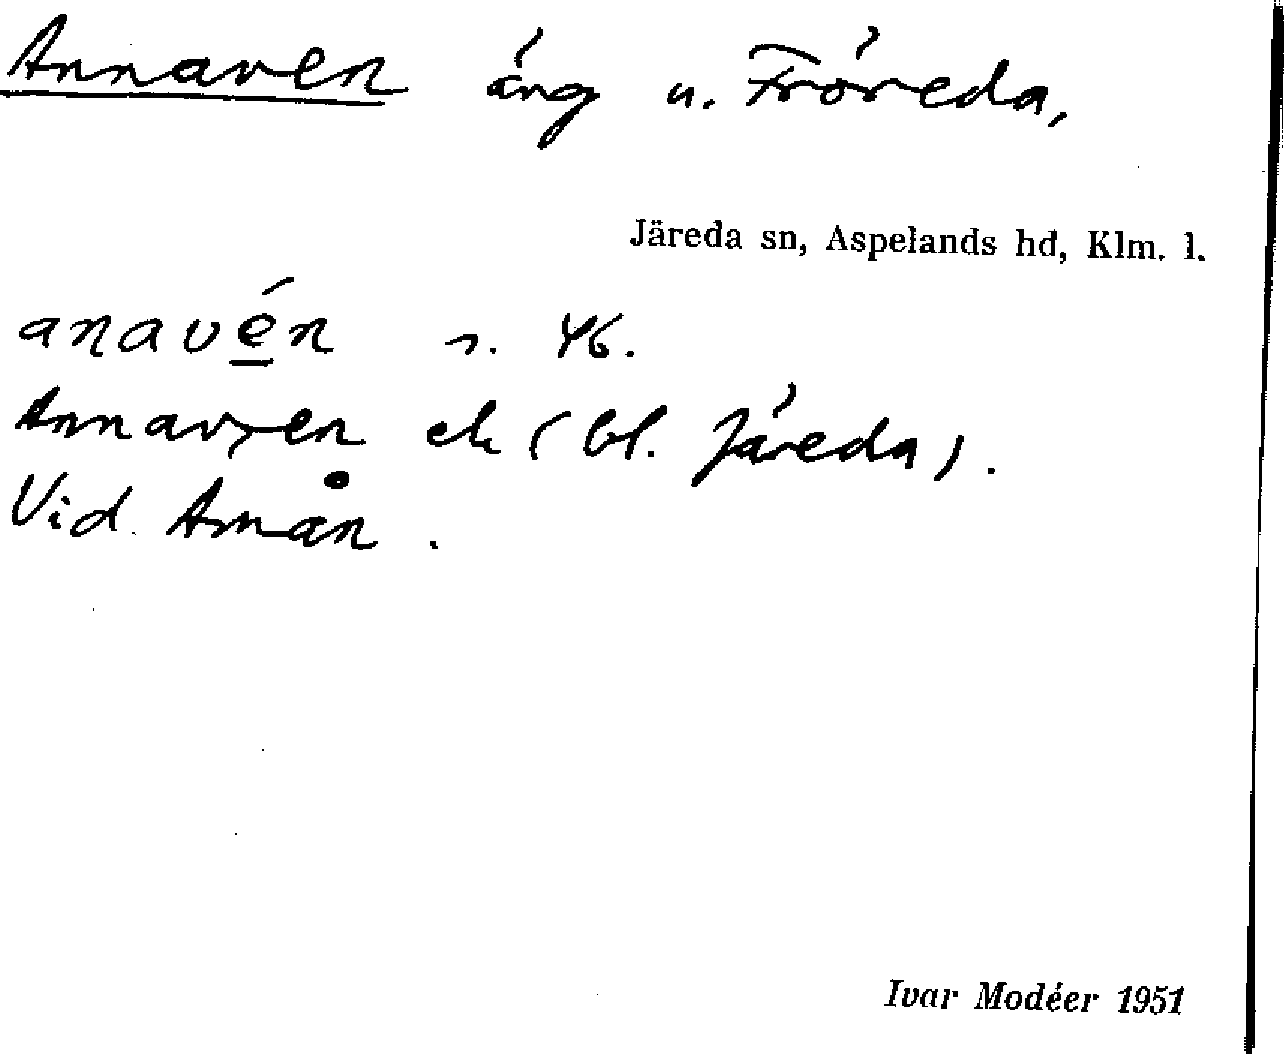 Annaven äng u. Fröreda,
Järeda sn, Aspelands hd, Klm. l.
anavén s. 46.
Annaven ek (bl. Järeda).
Vid Åmån.
Ivar Modéer 1951